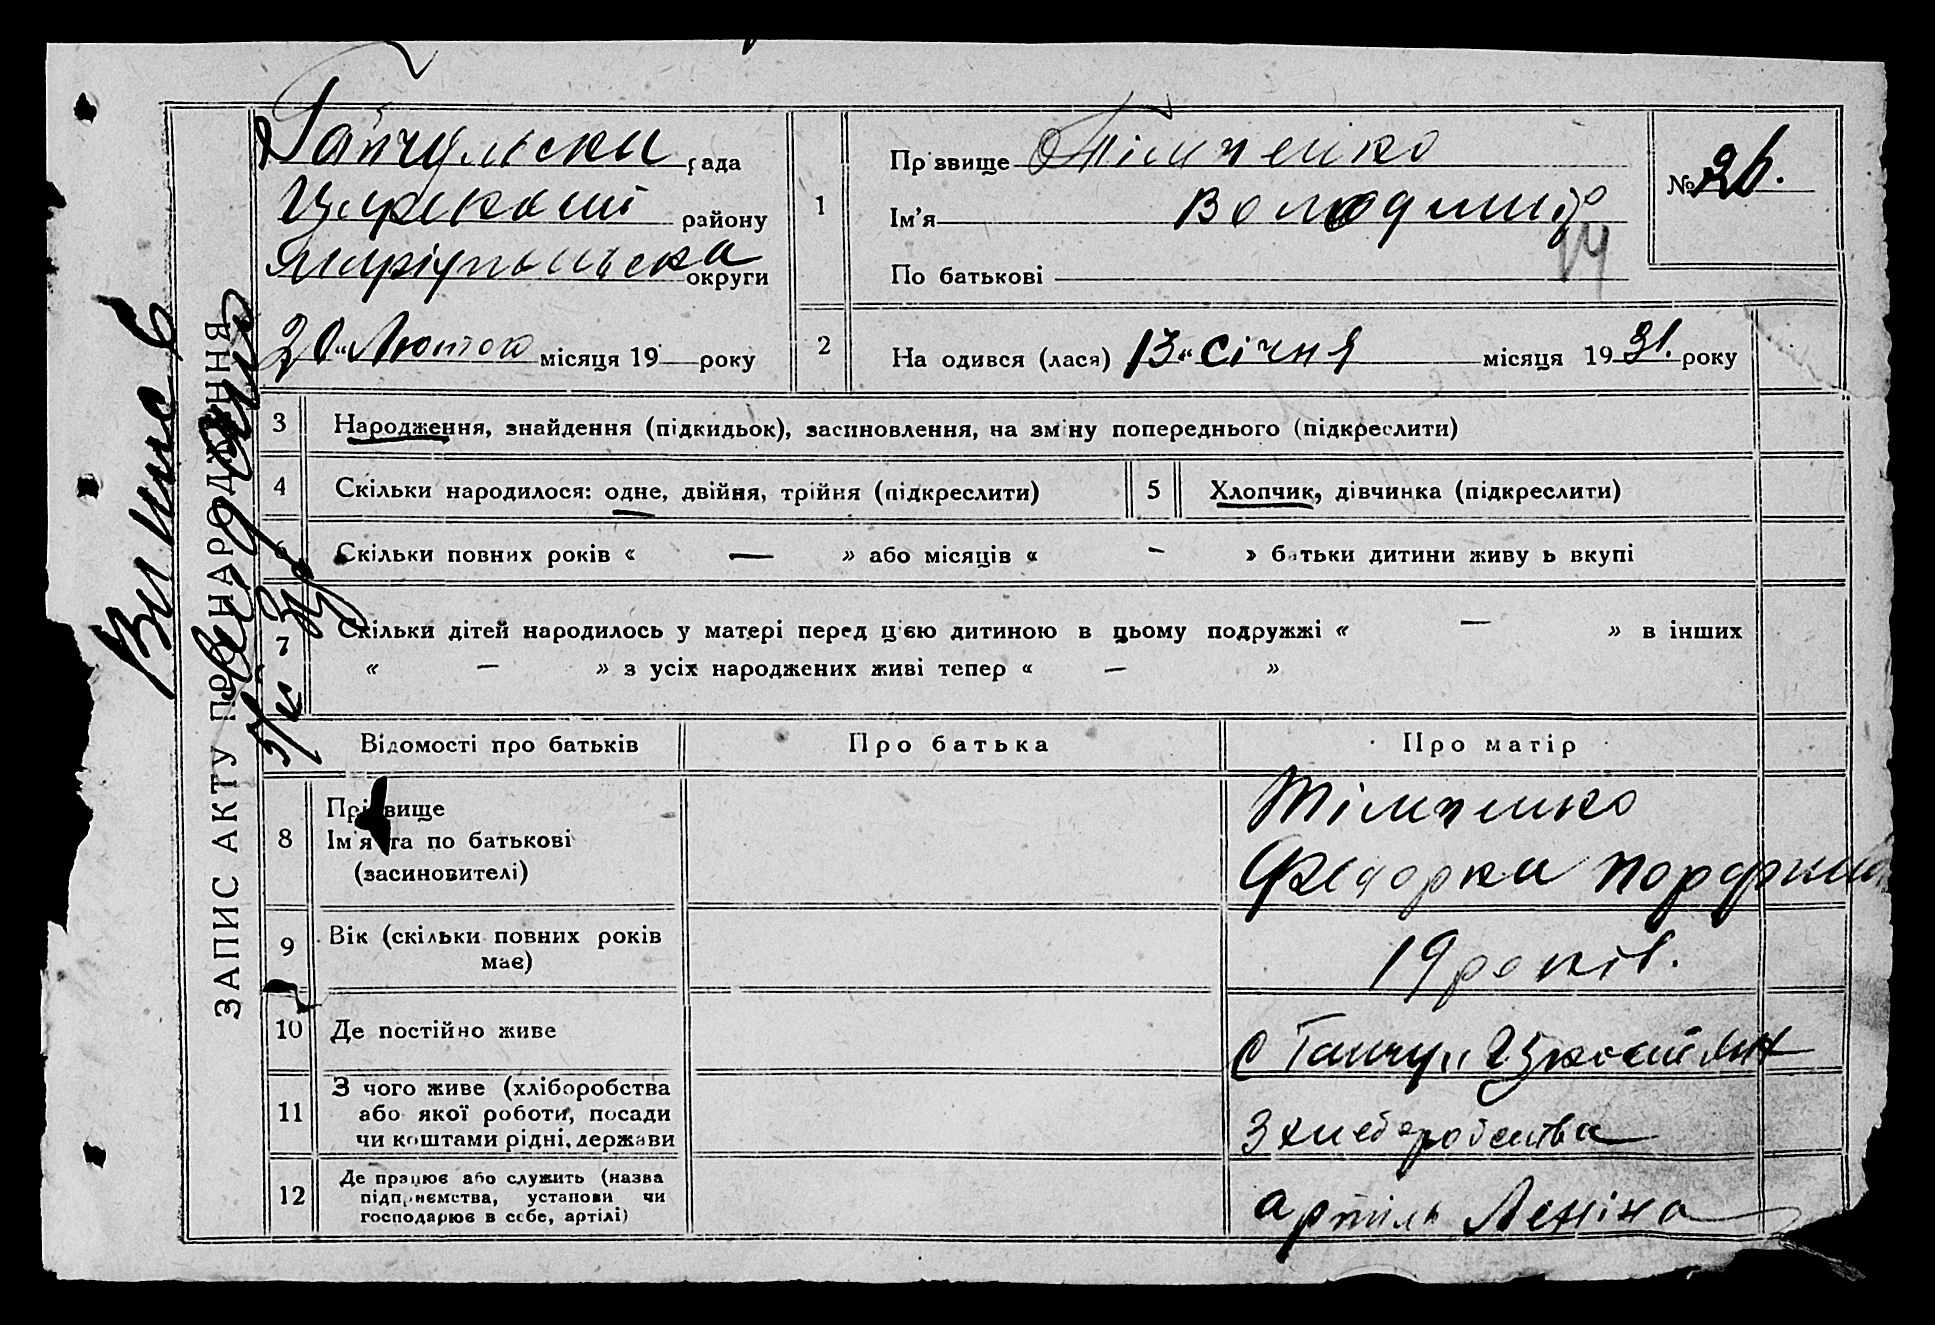 ЗАПИС АКТУ ПРО НАРОДЖЕННЯ
рада
району
округи
20 Лютого місяця 19 року
1
Прізвище Тімченко
Ім'я Володимир
По батькові
14
№ 26.
2
На одився (лася) 13 " Січня місяця 19 31. року
3 Народження, знайдення (підкидьок), засиновлення, на зміну попереднього (підкреслити)
4 Скільки народилося: одне, двійня, трійня (підкреслити)
5 Хлопчик, дівчинка (підкреслити)
6 Скільки повних років « — » або місяців « - » батьки дитини живу ь вкупі
7 Скільки дітей народилось у матері перед цією дитиною в цьому подружжі « — » в інших
« — » з усіх народжених живі тепер « — »
Відомості про батьків
Про батька
Про матір
8 Прізвище
Ім'я та по батькові
(засиновителі)
Тімченко
Федорка
9 Вік (скільки повних років
має)
19 років.
10 Де постійно живе
с
11 З чого живе (хліборобства
або якої роботи, посади
чи коштами рідні, держави
З хлеборобства
12 Де працює або служить (назва
підприємства, установи чи
господарює в себе, артілі)
артиль Леніна